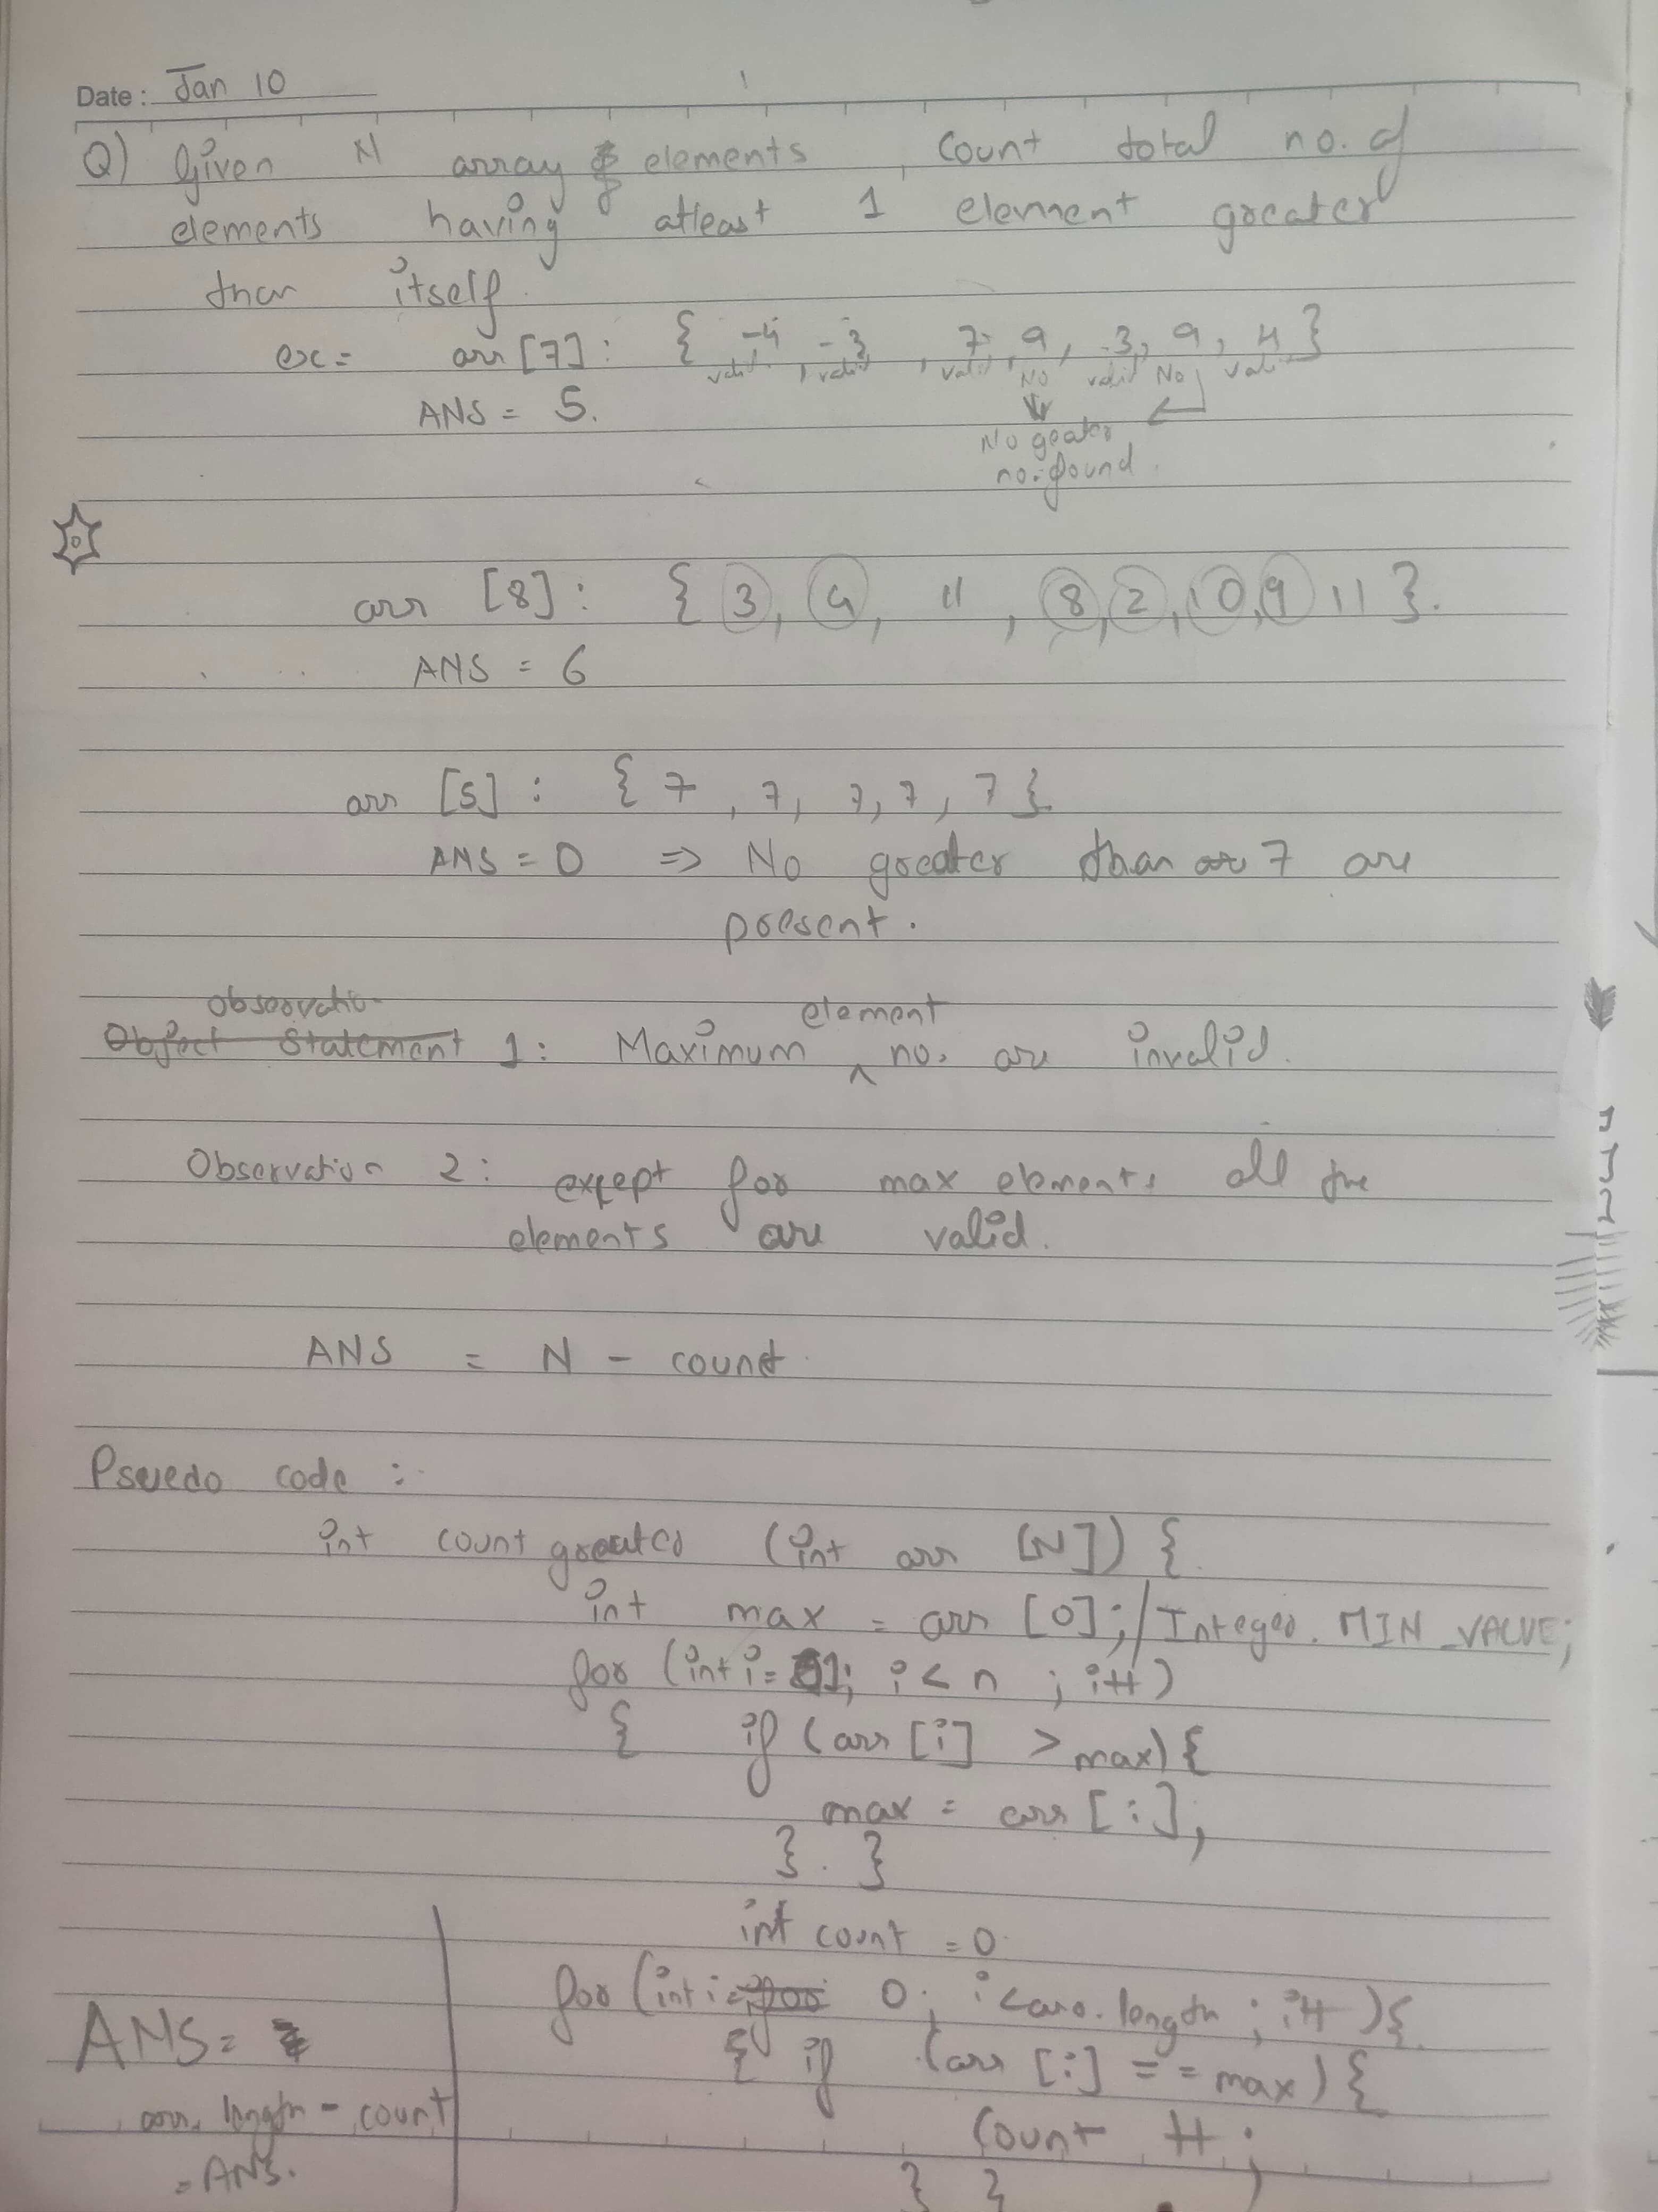 Date: Jan 10
Q) Given N array of elements, Count total no. of
elements having atleast 1 element greater
than itself.
ex= arr [7]: { -4, -3, 7, 9, -3, 9, 4 }
valid, valid, valid No valid No valid
ANS = 5.
No greater
no. found.
arr [8]: { 3, 4, 11, 8, 2, 10, 9 11 }.
ANS = 6
arr [5]: { 7, 7, 7, 7, 7 }
ANS = 0 ⇒ No greater than 7 are
present.
Observation element
Object Statement 1: Maximum ^ no. are invalid.
Observation 2: except for max elements all the
elements are valid.
ANS = N - count
Psuedo code :
int count greater (int arr [N]) {
int max = arr [0]; / Integer. MIN_VALUE;
for (int i= 1; i < n ; i++)
{ if (arr [i] > max) {
max = arr [i];
} . }
int count = 0
for (int i = 0; i < arr.length ; i++ ) {
{ if (arr [i] == max) {
Count ++ ;
} }
ANS =
arr. length - count
= ANS.